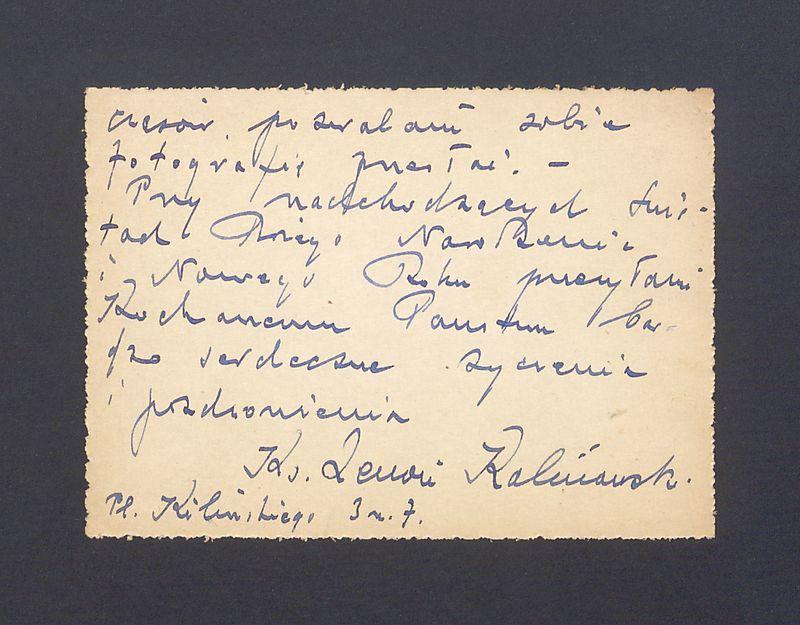 pozwalam sobie
fotografię przesłać. —
Przy nadchodzących Świę-
tach Bożego Narodzenia
i Nowego Roku przesyłam
Kochanemu Państwu bar-
dzo serdeczne życzenia
i pozdrowienia
Ks. Zenon Kalinowsk.
Pl. Kilińskiego 3 m. 7.